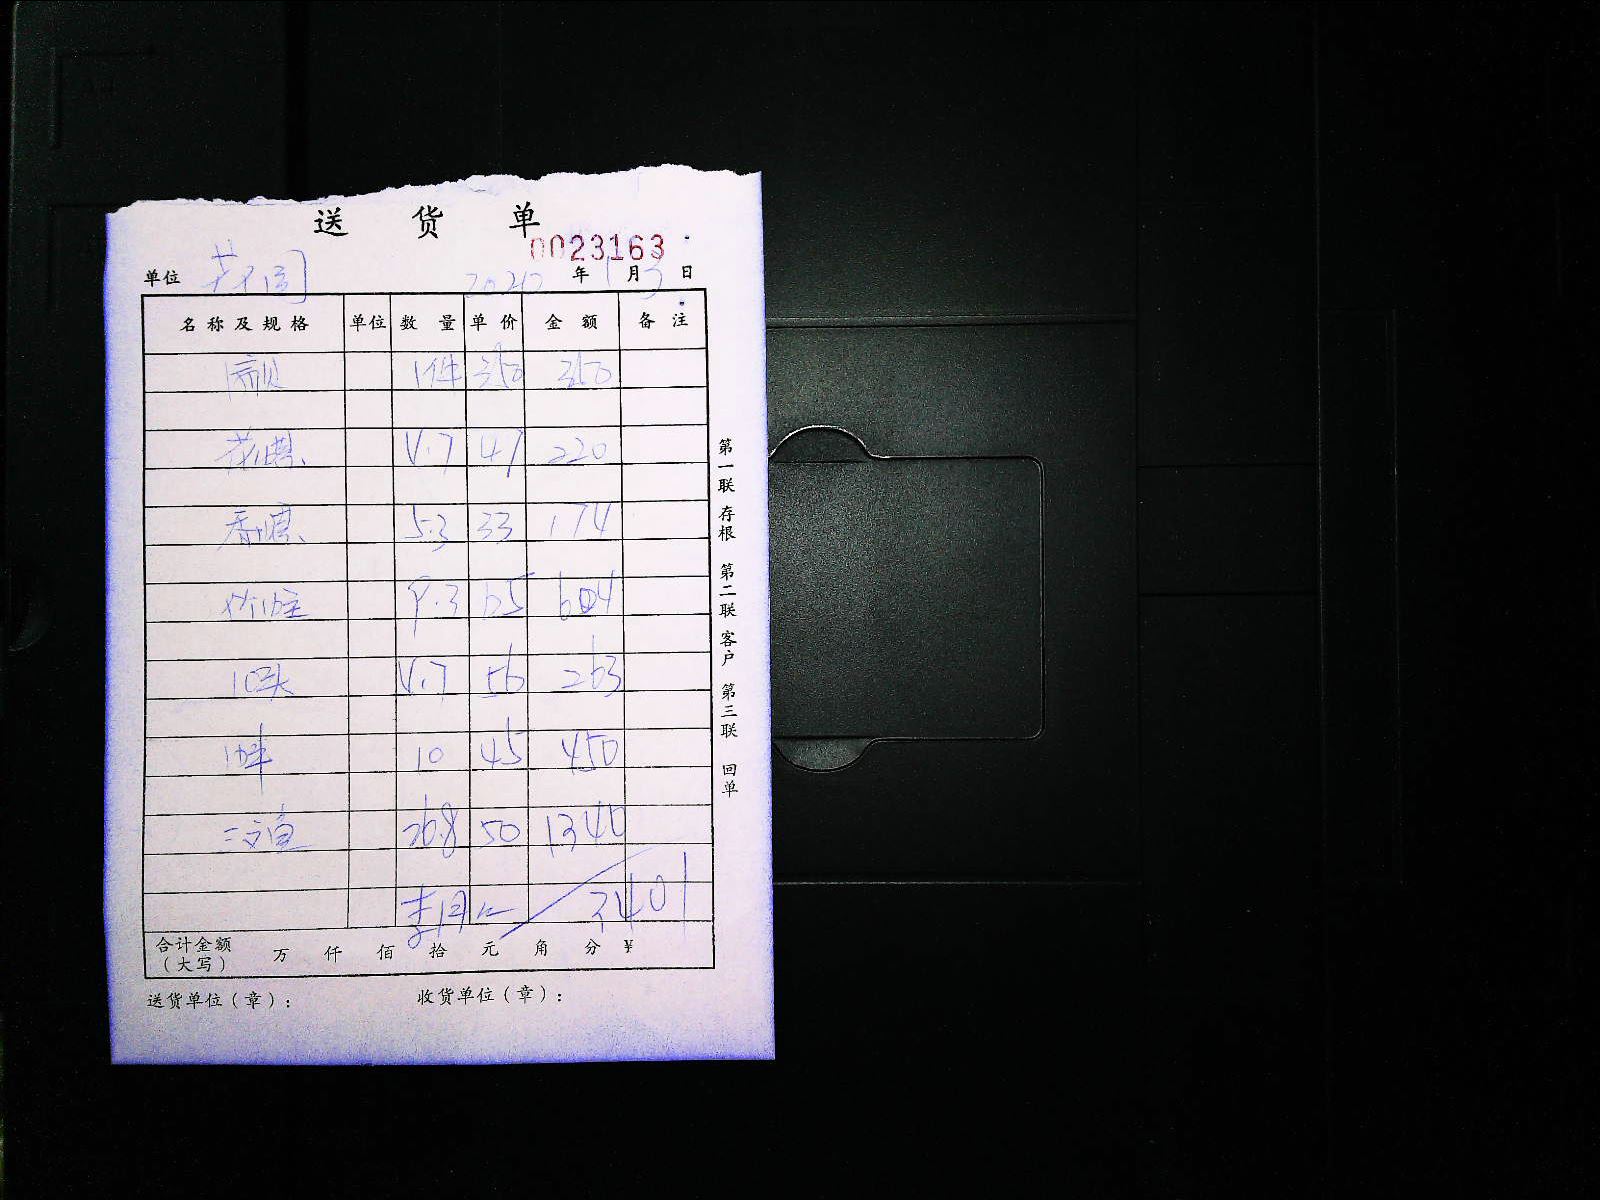 送 货 单
0023163
单位 年 1 月 3 日
名称及规格 单位 数量 单价 金额 备注
1件 350 350
花螺 4.7 47 220
香螺 5.3 33 174
9.3 65 604
4.7 56 263
10 45 450
三文鱼 26.8 50 1340
3401
合计金额(大写) 万 仟 佰 拾 元 角 分 ¥
送货单位(章): 收货单位(章):
第一联 存根 第二联 客户 第三联 回单